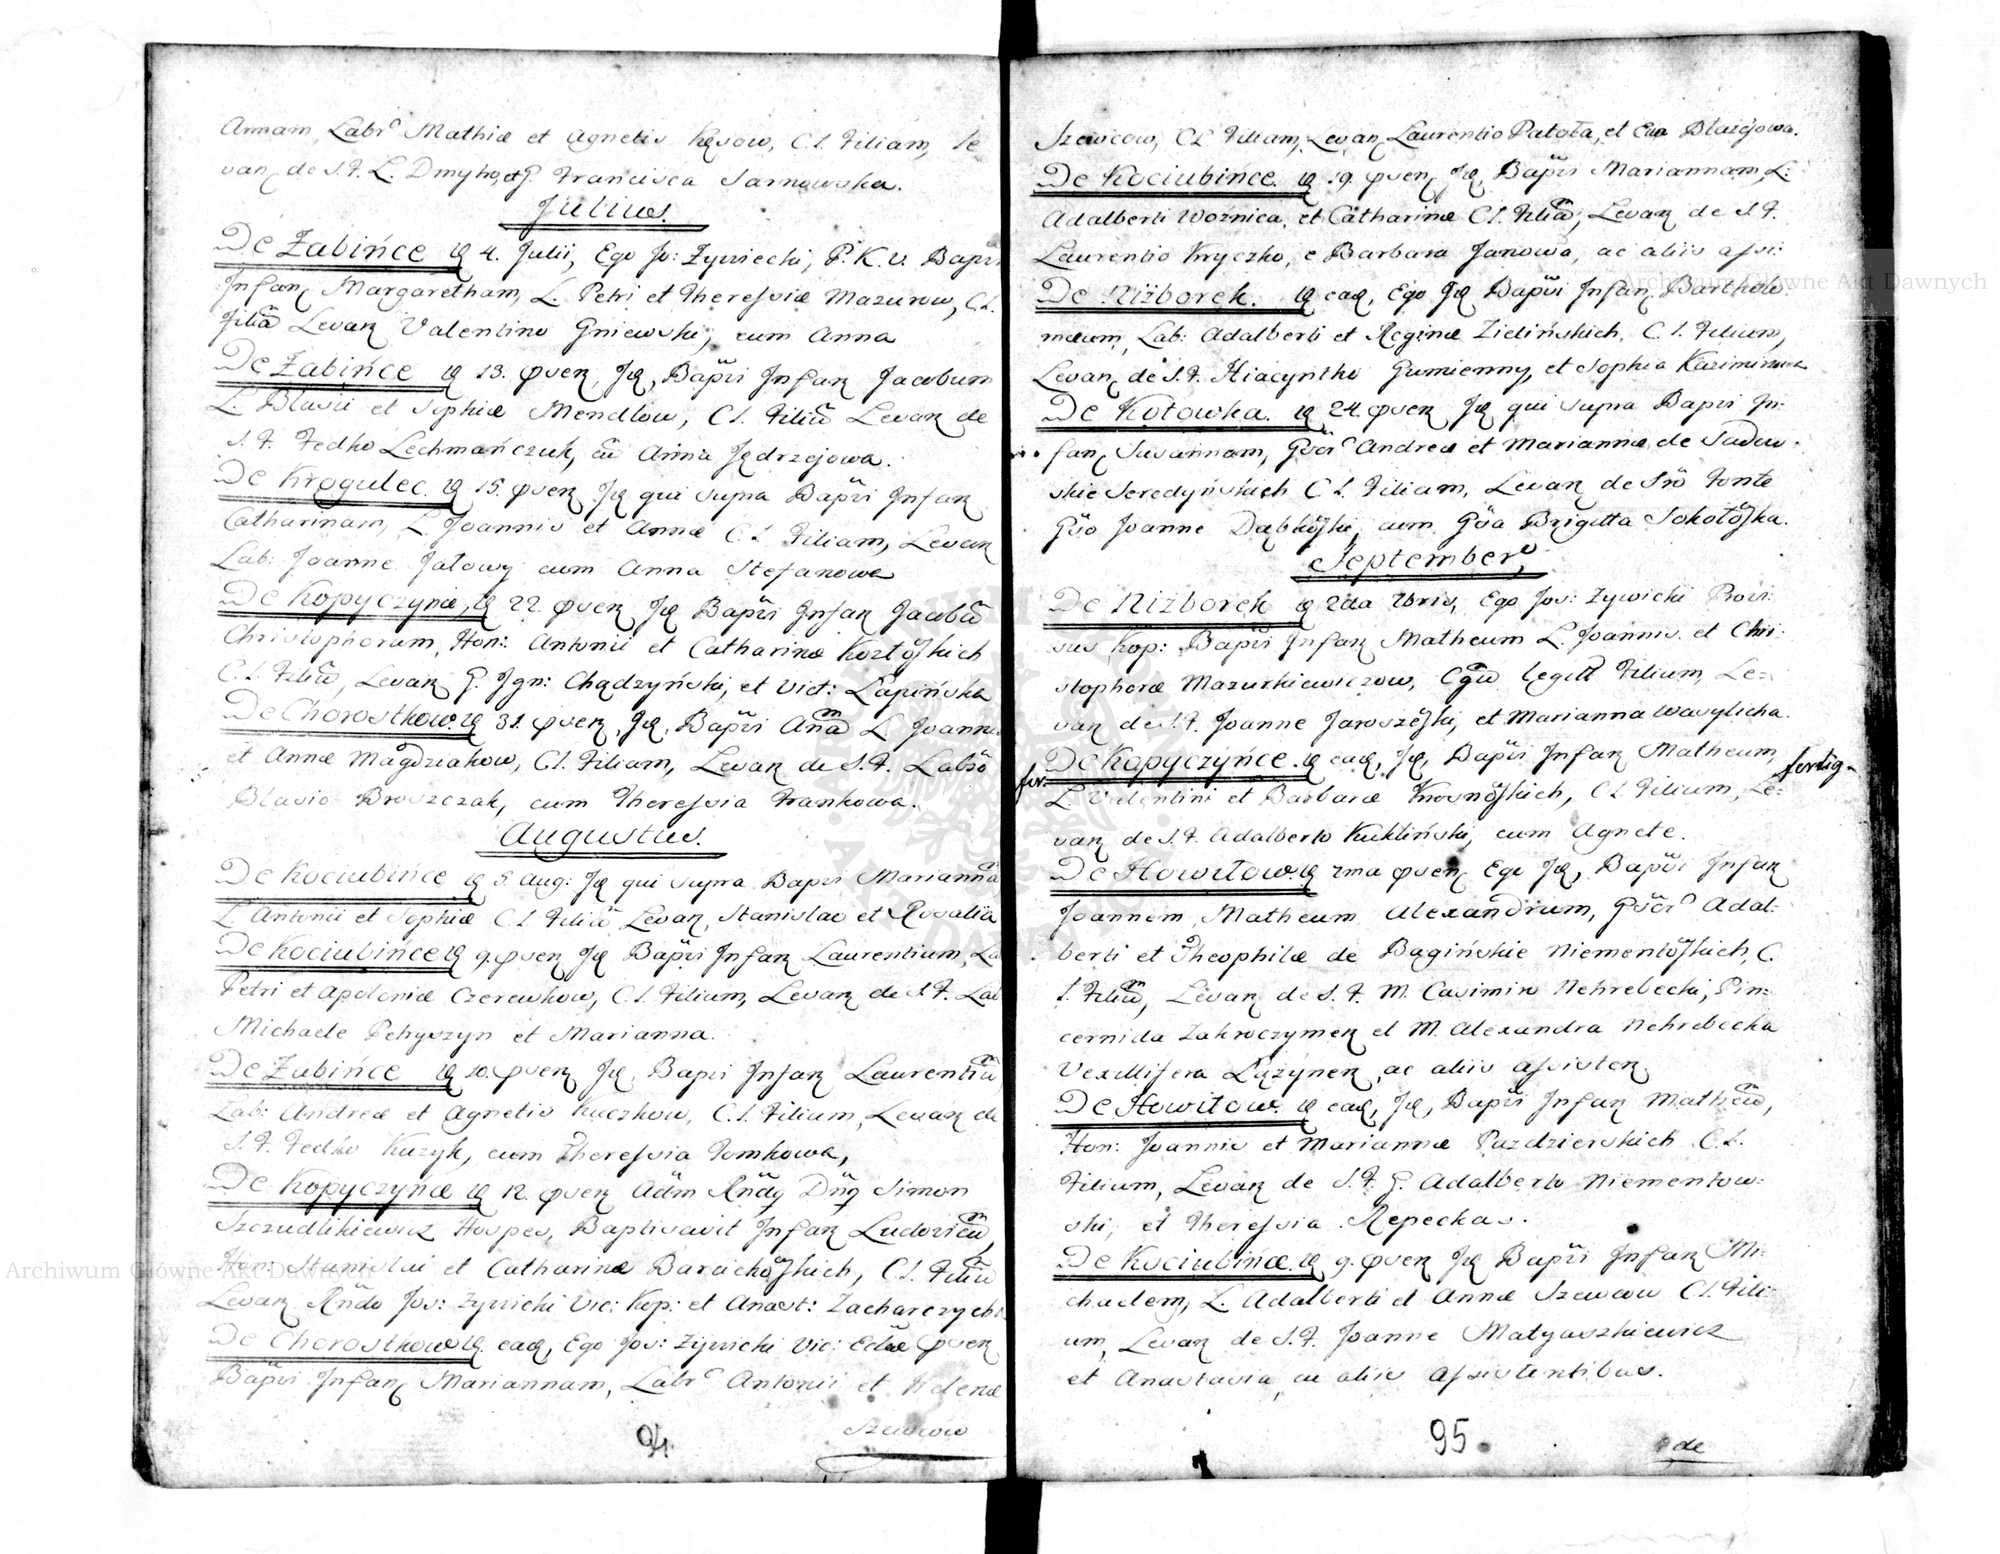 Annam, Labr̃ Mathiæ et Agnetis Kęsow, C.L. Filiam, Le
van: de S.F. L. Dmytro, et G. Francisca Sarnowska.
Julius.
De Żabińce ig 4. Julii, Ego Jo: Zywiecki, P.K.V. Bapzi
Infan: Margaretham, L. Petri et Theressiæ Mazurow, C.L.
Filiã Levan Valentino Gniewski, cum Anna
De Żabińce ig 13. qven, Iđ, Bapzi Infan Jacobum
L. Blasii et Sophiæ Mendlow, C.L. Filiũ Levan de
S.F. Fedko Lechmańczuk, cũ Anna Jędrzejowa.
De Krogulec ig 15. qven Iđ qui supra Bapzi Infan
Catharinam, L. Joannis et Annæ C.L. Filiam, Levan
Lab: Joanne Jałowy cum Anna Stefanowa
De Kopyczyńce, ig 22. qven Iđ Bapzi Infan Jacobũ
Christophorum, Hon: Antonii et Catharinæ Kozłoſkich
C.L. Filiũ, Levan G. Ign: Chądzyński, et Vict: Łapińska
De Chorostkow. ig 31. qven, Iđ, Bapzi Anã L. Joannis
et Annæ Magdziakow, C.L. Filiam, Levan de S.F. Labso
Blasio Broszczak, cum Theressia Frankowa.
Augustus.
De Kociubińce ig 5. Aug: Iđ qui supra Bapzi Marianna
L. Antonii et Sophiæ C.L. Filiã, Levan, Stanislao et Rosalia
De Kociubińce ig 9. qven Iđ Bapzi Infan Laurentium, La
Petri et Apoloniæ Czerewkow, C.L. Filium, Levan de S.F. Lab
Michaele Pehyszyn et Marianna.
De Żabińce ig 10. qven Iđ, Bapzi Infan Laurentiũ
Lab: Andreæ et Agnetis Kuczkow, C.L. Filium, Levan de
S.F. Fedko Kuzyk, cum Theressia Tomkowa,
De Kopyczyńce ig 12. qven Adm Rndg Dng Simon
Szczudlikiewicz Hospes, Baptisavit Infan Ludovicũ,
Hon: Stanislai et Catharinæ Barackoſkich, C.L. Filiũ
Levan Rndo Jos: Zywicki Vic: Kop: et Anast: Zacharczycha
De Chorostkow ig. eađ, Ego Jos: Zywicki Vic: qven
Bapzi Infan: Mariannam, Labr̃ Antonii et Helenæ
Szewcow
94
Szewcow, C.L. Filiam, Levan, Laurentio Patoła, et Eva Błażejowa.
De Kociubińce. ig 19. qven, Iđ, Bapzi Mariannam, L:
Adalberti Woźnica, et Catharinæ C.L. Filiã, Levan de S.F.
Laurentio Kryczko, e Barbara Janowa, ac aliis assi:
De Niżborek. ig eađ, Ego Iđ Bapzi Infan Bartholo:
mæum, Lab: Adalberti et Reginæ Zielińskich, C.L. Filium,
Levan, de S.F. Hiacyntho Gumienny, et Sophia Kazimirowa
De Kotowka. ig 24. qven Iđ qui supra Bapzi In:
fan, Susannam, Gsõr̃ Andreæ et Mariannæ de Sadow:
skie Seredyńskich C.L. Filiam, Levan de Sro Fonte
Gso Joanne Dąbkoſki, cum Gsa Brigitta Sokołoſka.
September,
De Niżborek ig 2da 7bris, Ego Jos: Zywicki Provi:
sus Kop: Bapzi Infan Matheum L. Joannis et Chri:
stophoræ Mazurkiewiczow, Cgũ legitt Filium, Le:
van de S.F. Joanne Jaroszeſki, et Marianna Wasylicha.
De Kopyczyńce. ig eađ, Iđ, Bapzi Infan Matheum,
for. fortig.
L. Valentini et Barbaræ Krosnoſkich, C.L. Filium, Le:
van de S.F. Adalberto Kukliński, cum Agnete.
De Howiłow. ig 7ma qven Ego Iđ, Bapzi Infan
Joannem, Matheum Alexandrum, Gsõr̃ Adal:
berti et Theophilæ de Bagińskie Niementoſkich, C.
L. Filiũ, Levan de S.F. M. Casimiro Nehrebecki, Pin:
cernida Zakroczymen et M. Alexandra Nehrebecka
Vexillifera Łążynen, ac aliis assisten
De Howiłow. ig eađ, Iđ, Bapzi Infan Matheũ,
Hon: Joannis et Mariannæ Pazdzierskich C.L.
Filium, Levan de S.F. G. Adalberto Niementow:
ski, et Theressia Repecka.
De Kociubińce. ig 9. qven Iđ Bapzi Infan Mi:
chaelem, L. Adalberti et Annæ Szewcow C.L. Fili:
um, Levan de S.F. Joanne Matyaszkiewicz
et Anastasia, ac aliis assistentibus.
95
de
Archiwum Główne Akt Dawnych
Archiwum Główne Akt Dawnych